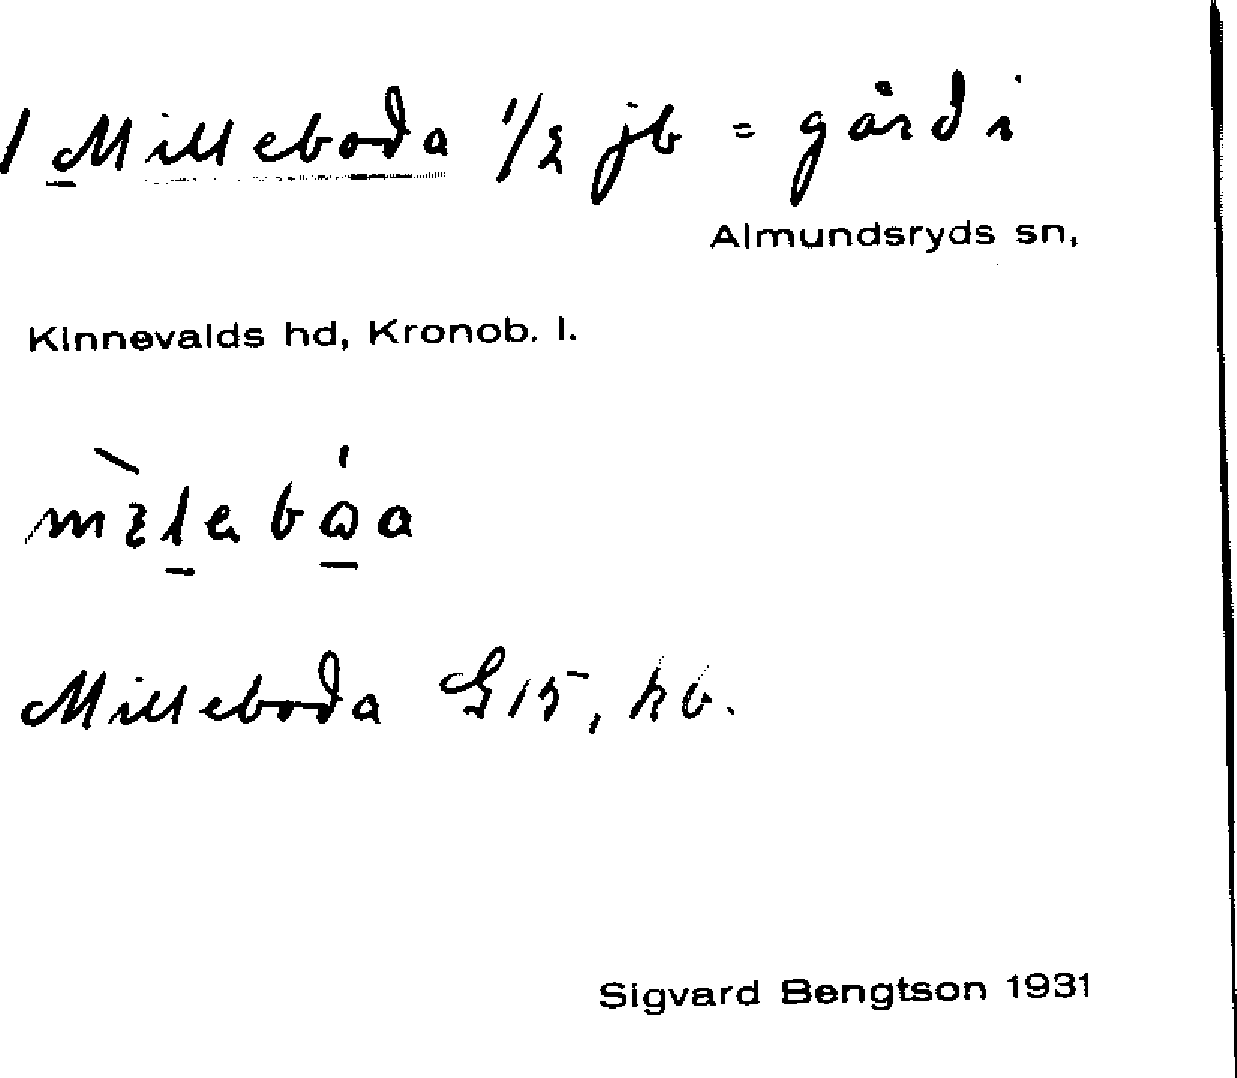 1 Milleboda 1/2 jb = gård i
Almundsryds sn,
Kinnevalds hd, Kronob. l.
Milleboda G15, hb.
Sigvard Bengtson 1931